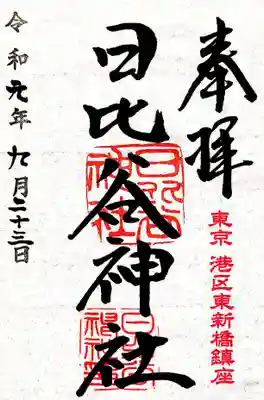 奉拝
東京 港区東新橋鎮座
日比谷神社
日比谷神社
令和元年 九月二十三日